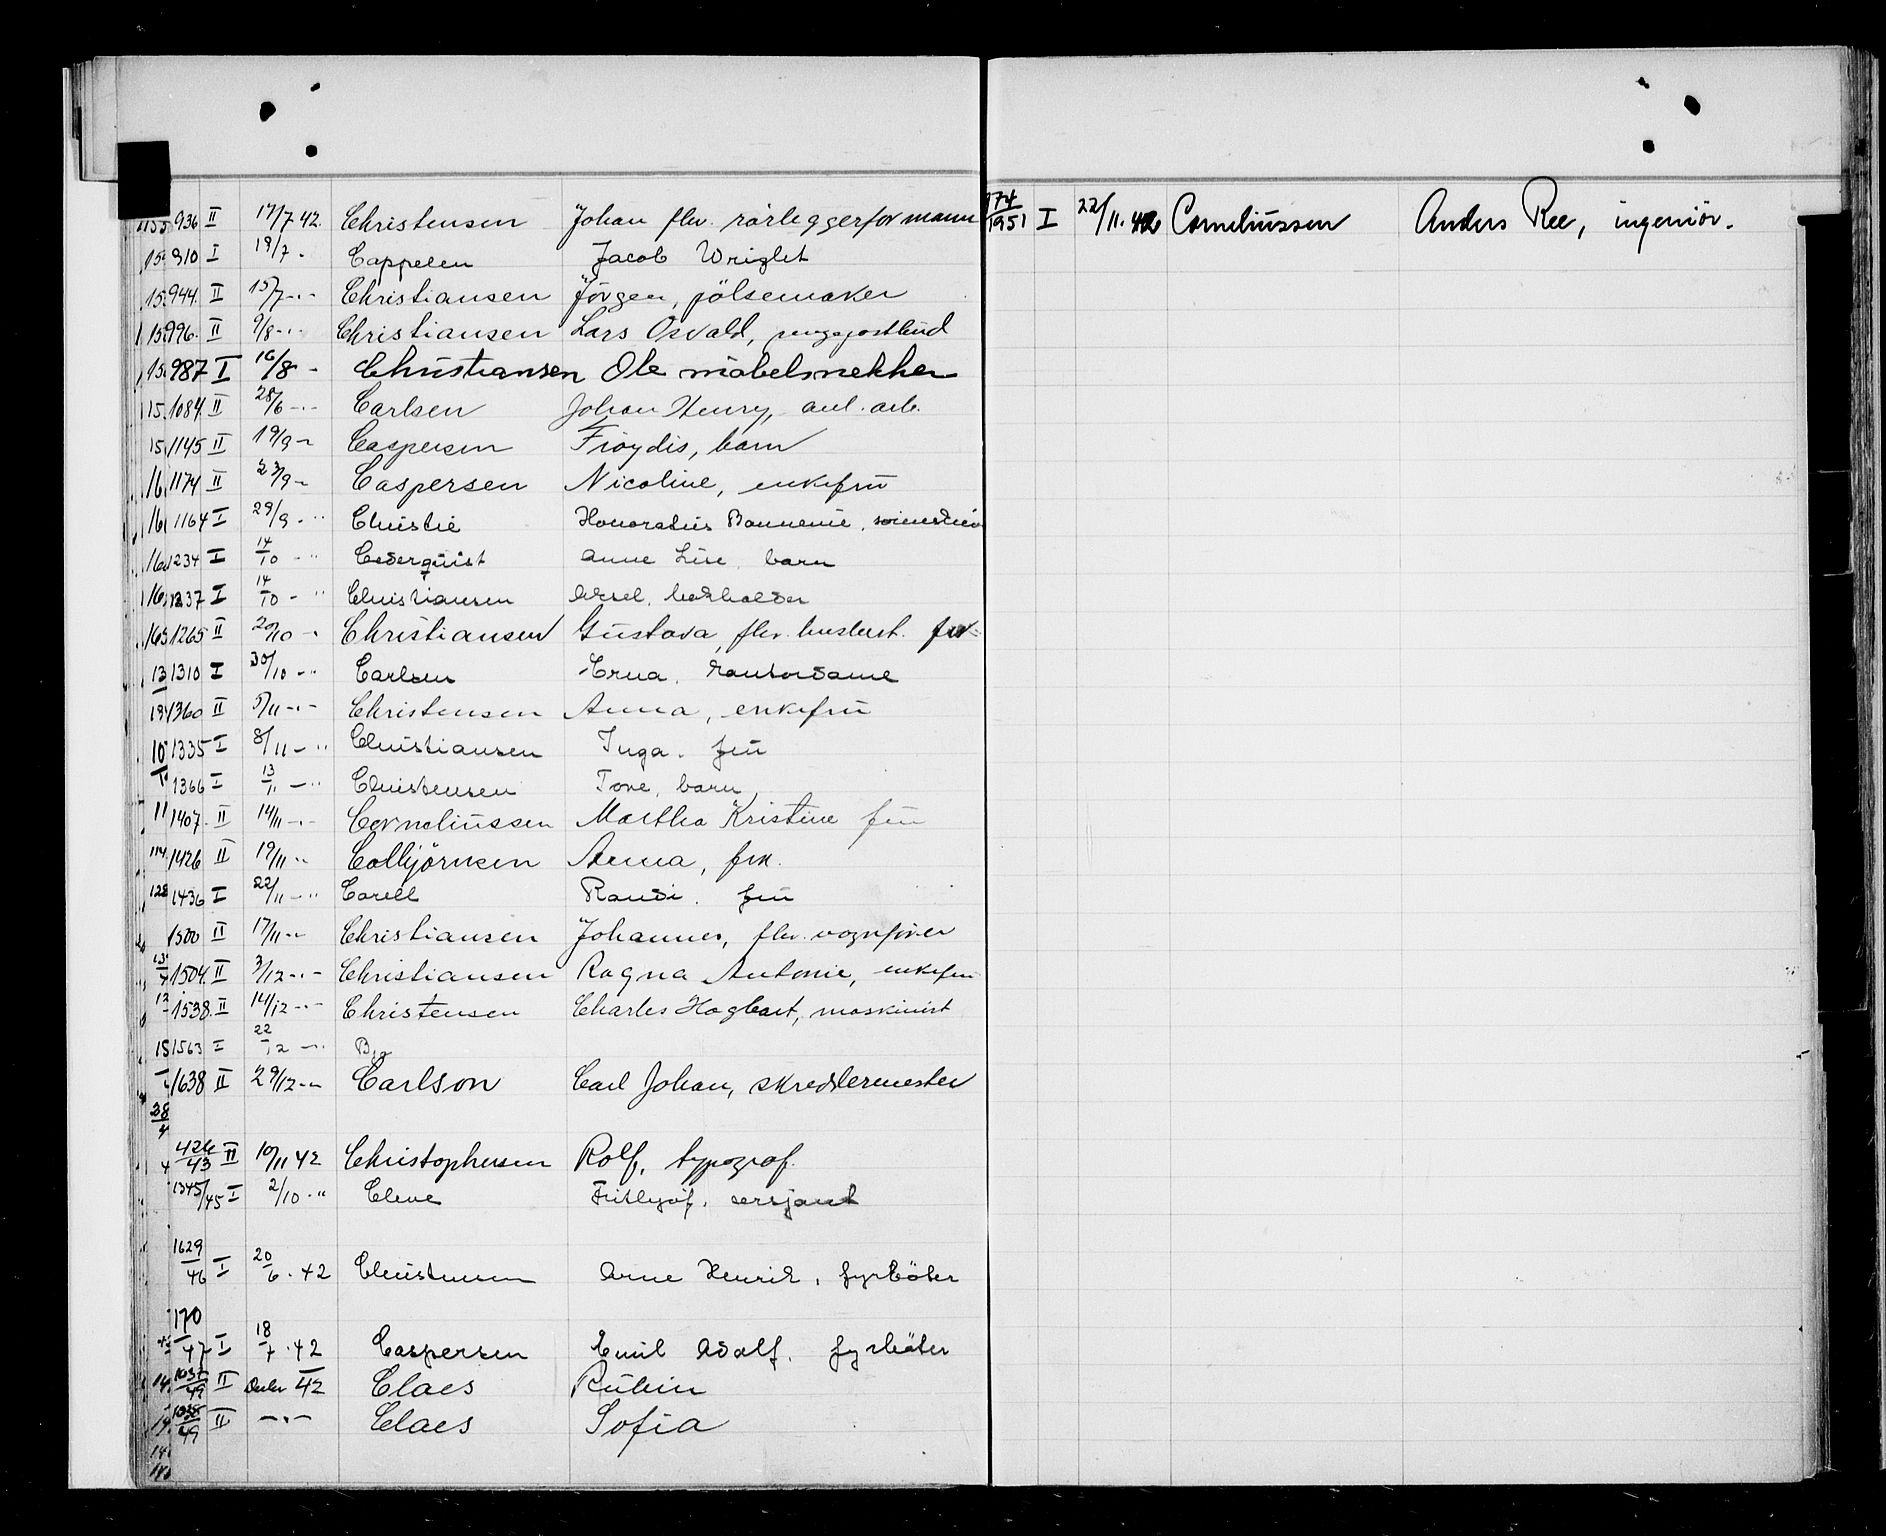 936 II 17/7 42. Christensen Johan flv. rörleggerformann
910 I 18/7 . Cappelen Jacob Wright
944. II 15/7 -.- Christiansen Jörgen, pölsemaker
996. II 9/8 -.- Christiansen Lars Osvald,
987 I 16/8 - Christiansen Ole möbelsnekker
1084. II 28/6 -.- Carlsen Johan Henry, anl. arb.
1145 II 19/9 - Caspersen Fröydis, barn
1174 II 23/9 - Caspersen Nicoline, enkefru
1164 I 29/9 - " Christie Honoratius Bonnevie,
1234 I 14/10 - " Cederquist Anne Lise, barn
1237 I 14/10 - " Christiansen Aksel, bokholder
1265 II 20/10 - Christiansen Gustava, flv. husbest.
1310 I 30/10 - " Carlsen Erna, kontordame
1360 II 5/11 -.- Christensen Anna, enkefru
1335 I 8/11 - " Christiansen Inga, fru
1366 I 13/11 - " Christensen Tove, barn
1407. II 14/11 -.- Corneliussen Martha Kristine fru
1426 II 19/11 - Colbjörnsen Anna, frk.
1436 I 22/11 - " Corell Randi, fru
1500 II 17/11 - Christiansen Johannes, flv. vognfører
1504. II 3/12 -.- Christiansen Ragna Antonie, enkefru
1538. II 14/12 -.- Christensen Charles Hagbart, maskinist
1563 I 22/12 - "
1638 II 29/12 - Carlson Carl Johan, skreddermester
426/43 II 10/11 42 Christophersen Rolf, typograf.
1345/45 I 2/10 - " Cleve Frithjof, sersjant
1629/46 I 20/6 . 42 Christensen Arne Henrik, fyrböter
170/47 I 18/7 . 42 Caspersen Emil Adolf, fyrböter
1037/49 II Desbr 42 Claes Rubin
1038/49 II -.- Claes Sofia
974/1951 I 22/11. 42 Corneliussen Anders Ree, ingeniör.